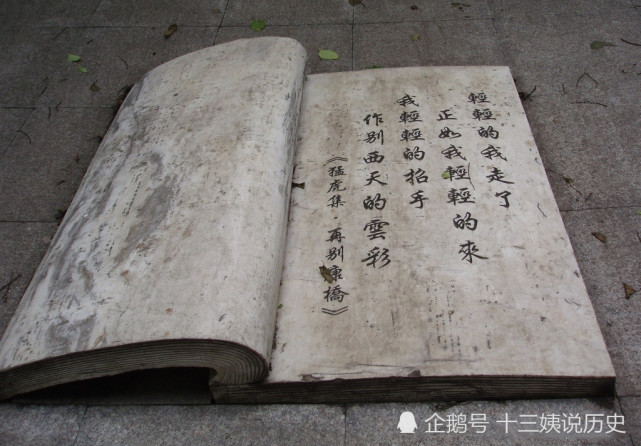 輕輕的我走了
正如我輕輕的來
我輕輕的招手
作别西天的雲彩
《猛虎集·再别康橋》
企鹅号 十三姨说历史